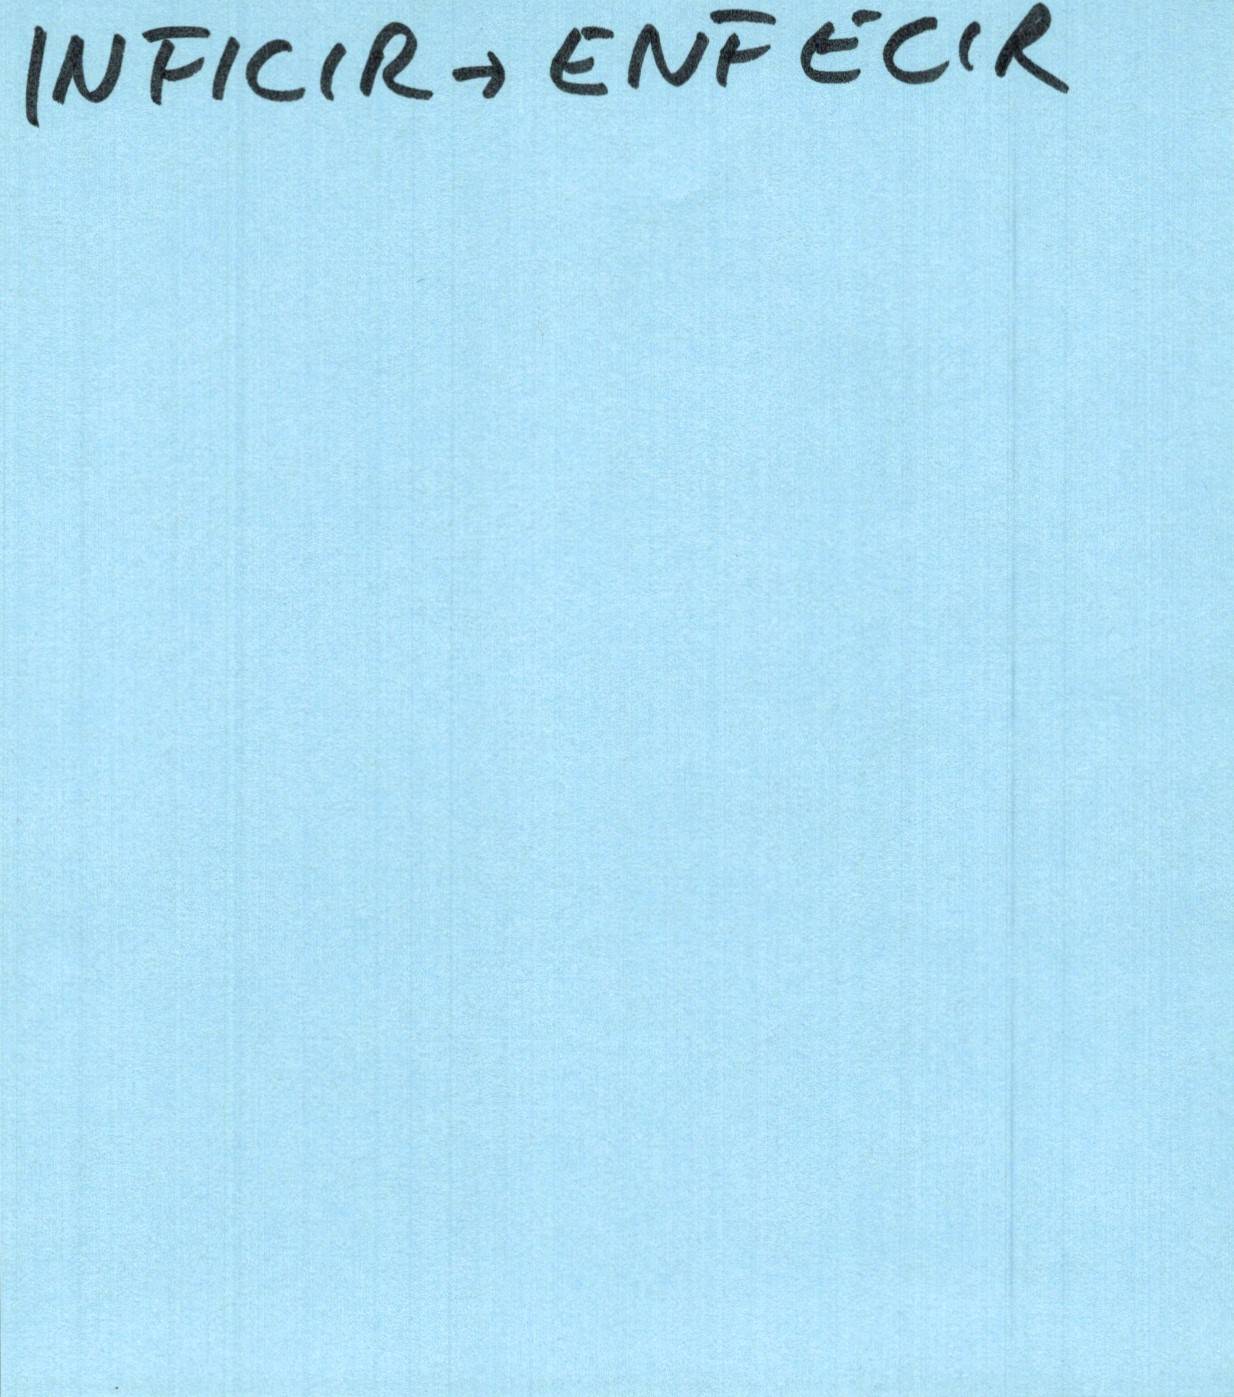 INFICIR → ENFECIR